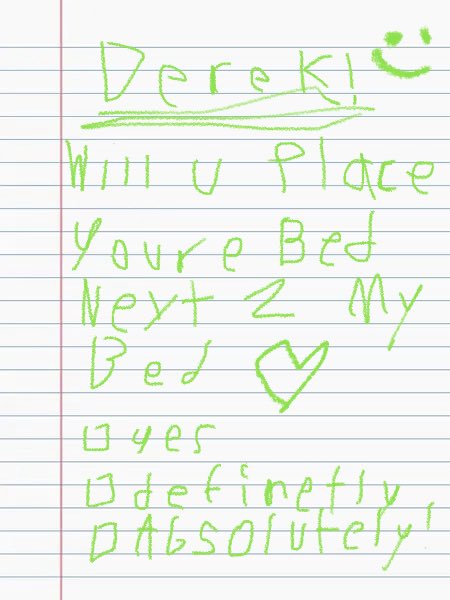 Derek!
Will u Place
Youre Bed
Next 2 My
Bed
yes
definetly
Absolutely!